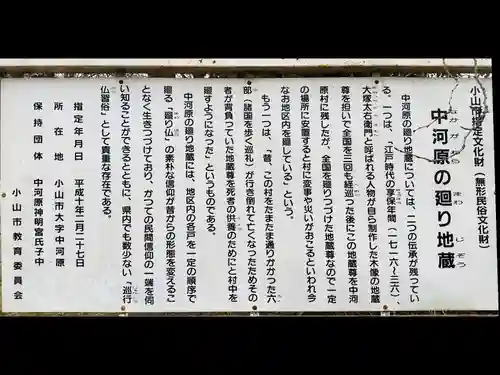 小山市指定文化財（無形民俗文化財）
中河原の廻り地蔵
なかがわら
まわ
じぞう
中河原の廻り地蔵については、二つの伝承が残ってい
る。一つは、「江戸時代の享保年間（一七一六～三六）、
大塚太右衛門と呼ばれる人物が自ら制作した木像の地蔵
尊を担いで全国を三回も経巡った後にこの地蔵尊を中河
原村に残したが、全国を廻りつづけた地蔵尊なので一定
の場所に安置すると村に変事や災いがおこるといわれ今
なお地区内を廻している」という。
もう一つは、「昔、この村をたまたま通りかかった六
部（諸国を歩く巡礼）が行き倒れて亡くなったためその
者が背負っていた地蔵尊を死者の供養のためにと村中を
廻すようになった」というものである。
中河原の廻り地蔵は、地区内の各戸を一定の順序で
廻る「廻り仏」の素朴な信仰が昔からの形態を変えるこ
となく生きつづけており、かつての民間信仰の一端を伺
い知ることができるとともに、県内でも数少ない「巡行
仏習俗」として貴重な存在である。
指定年月日　平成十年二月二十七日
所在地　小山市大字中河原
保持団体　中河原神明宮氏子中
小山市教育委員会